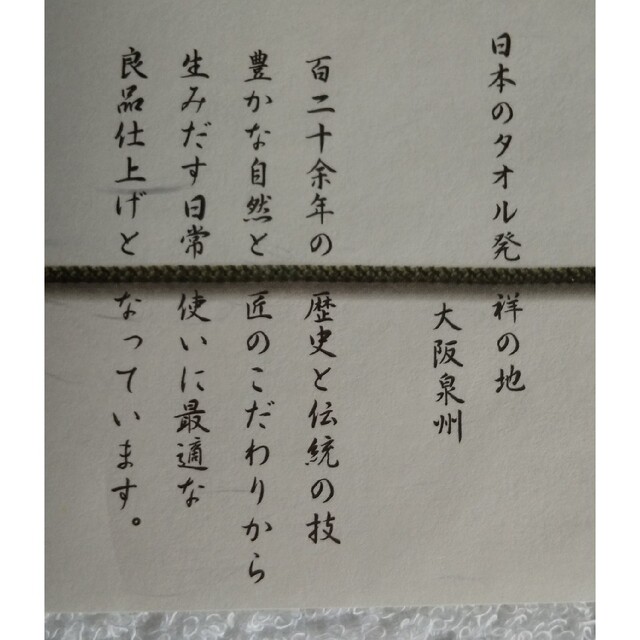 日本のタオル発祥の地
大阪泉州
百二十余年の歴史と伝統の技
豊かな自然と匠のこだわりから
生みだす日常使いに最適な
良品仕上げとなっています。